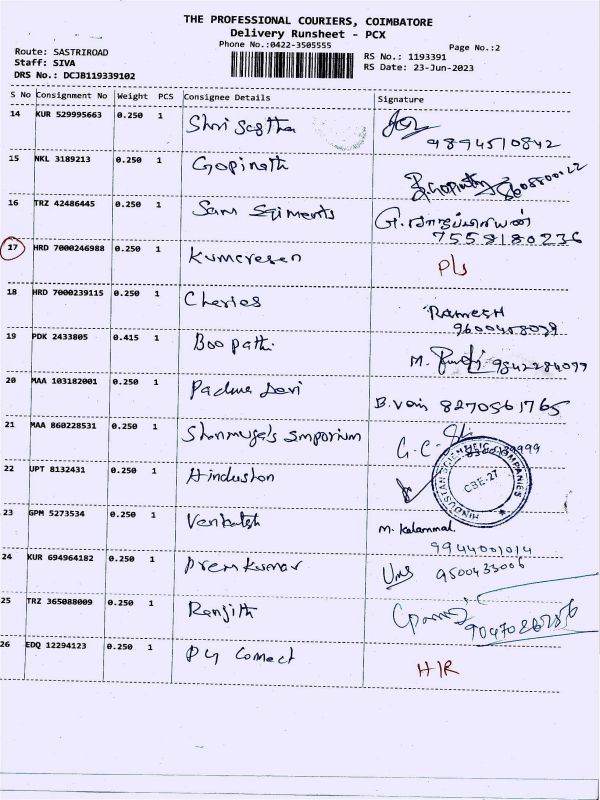 THE PROFESSIONAL COURIERS, COIMBATORE
Delivery Runsheet - PCX
Phone No.:0422-3505555
Page No.:2
Route: SASTRIROAD
Staff: SIVA
DRS No.: DCJB119339102
RS No.: 1193391
RS Date: 23-Jun-2023
S No Consignment No Weight PCS Consignee Details Signature
14 KUR 529995663 0.250 1 Shri Sastha
9894510842
15 NKL 3189213 0.250 1 Gopinath
16 TRZ 42486445 0.250 1 Sam
7558180236
17 HRD 7000246988 0.250 1 Kumaresan P/s
18 HRD 7000239115 0.250 1 Cheries Ramesh
19 PDK 2433805 0.415 1 Boopathi M. 9842284099
20 MAA 103182001 0.250 1 Padma Devi B. Vani 8270561765
21 MAA 860228531 0.250 1 Shanmuga's Emporium G.C.
22 UPT 8132431 0.250 1 Hindustan
HINDUSTAN SCIENTIFIC COMPANIES
CBE-27
23 GPM 5273534 0.250 1 Venkatesh M. Kalammal
9944001014
24 KUR 694964182 0.250 1 Prem Kumar Ums 9500433006
25 TRZ 365088009 0.250 1 Ranjith
26 EDQ 12294123 0.250 1 Connect H/R